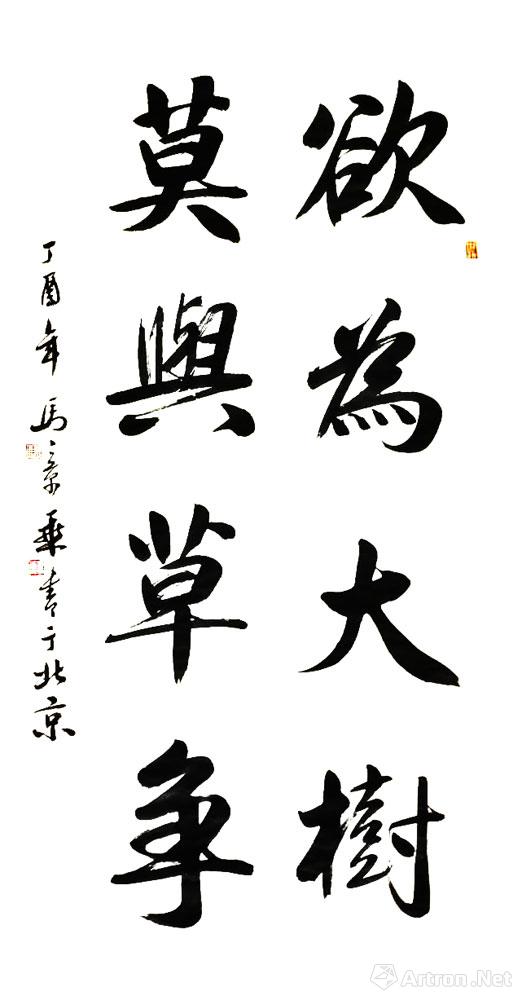 欲為大樹
莫與草爭
丁酉年馬景乘書于北京
Artron.Net